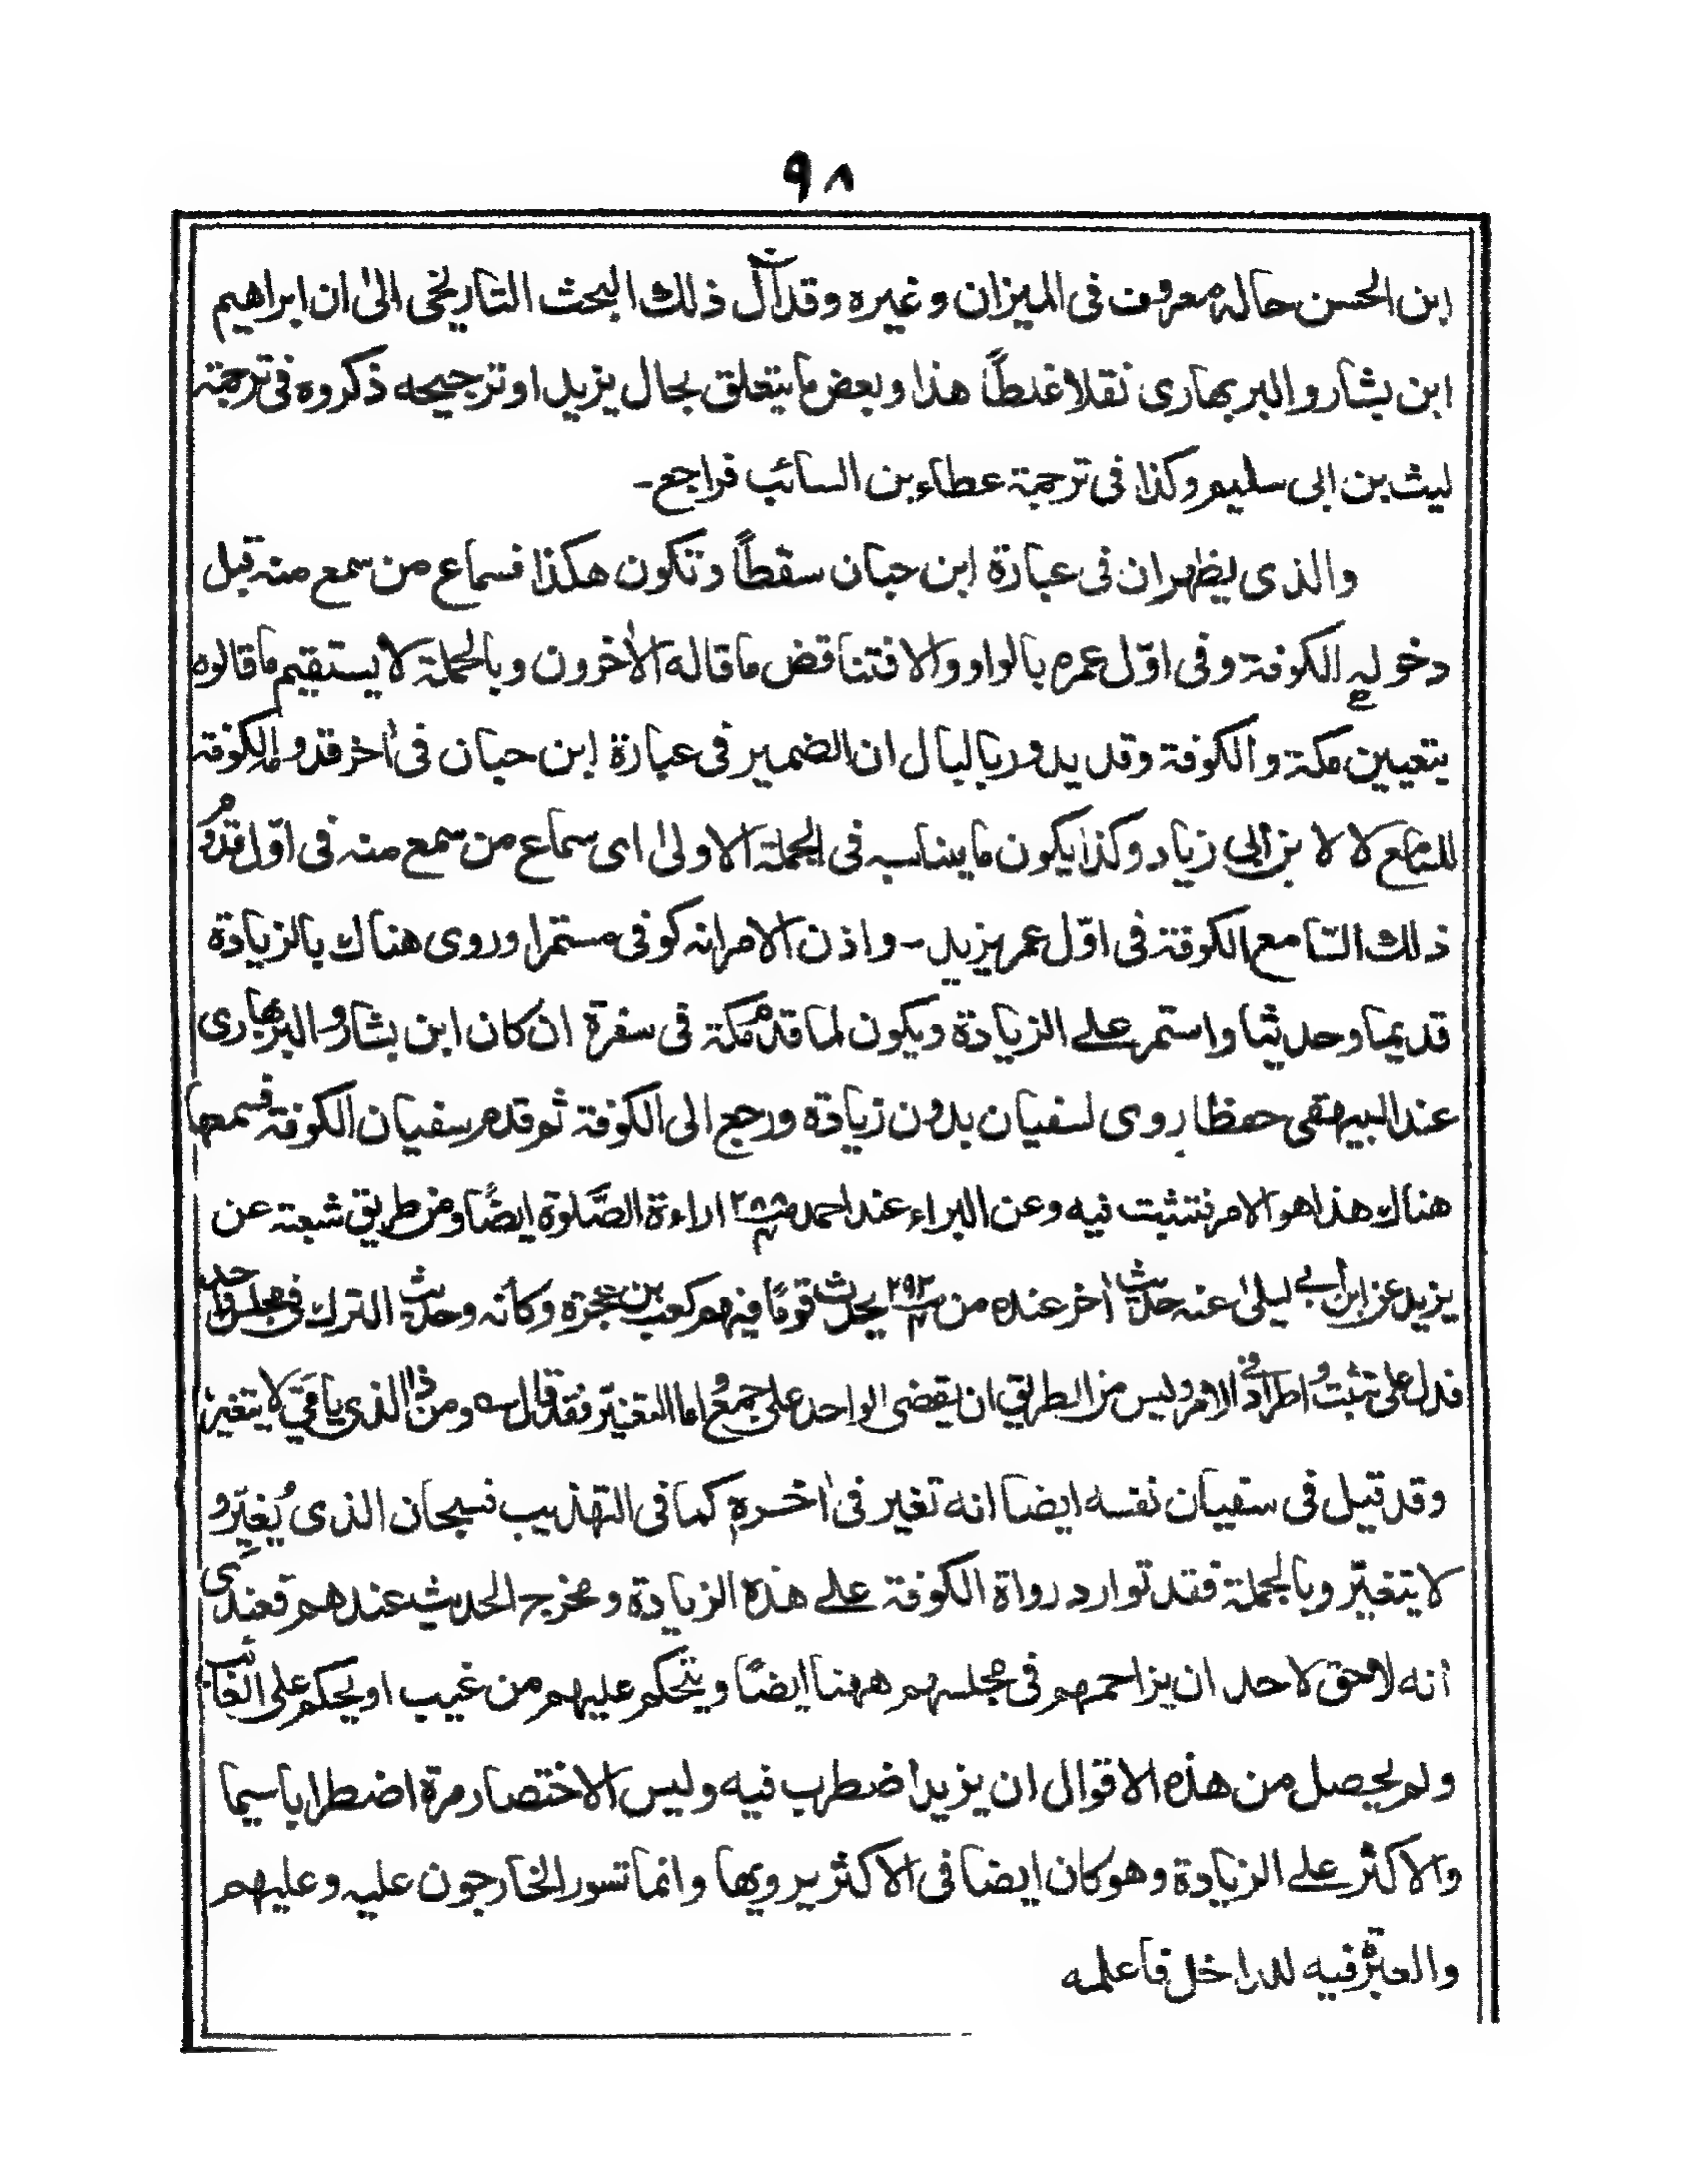 ٩٨
ابن الحسن حاله معروف في الميزان وغيره وقد آل ذلك البحث التاريخي الى ان ابراهيم
ابن بشار والبربهاري نقلا غلطاً هذا وبعض ما يتعلق بحال يزيد او ترجيحه ذكروه في ترجمة
ليث بن ابي سليم وكذا في ترجمة عطاء بن السائب فراجع-
والذي يظهر ان في عبارة ابن حبان سقطاً وتكون هكذا فسماع من سمع منه قبل
دخوله الكوفة وفي اوّل عمره بالواو والا فتناقض ما قاله الاٰخرون وبالجملة لا يستقيم ما قالوه
بتعيين مكة والكوفة وقد يدور بالبال ان الضمير في عبارة ابن حبان في اٰخر قدومه الكوفة
للسامع لا لابن أبي زياد وكذا يكون ما يناسبه في الجملة الاولىٰ اى سماع من سمع منه في اوّل قدوم
ذلك السامع الكوفة في اوّل عمر يزيد- واذن الامر انه كوفي مستمرا وروى هناك بالزيادة
قديما وحديثا واستمر علے الزيادة ويكون لما قدم مكة في سفرة ان كان ابن بشار والبربهاري
عند البيهقي حفظا روى لسفيان بدون زيادة ورجع الى الكوفة ثم قدم سفيان الكوفة فسمعها
هناك هذا هو الامر فتثبت فيه وعن البراء عند احمد ص٢٨٨ ج٤ اراءة الصَّلوٰة ايضًا ومن طريق شعبة عن
يزيد عن ابن أبي ليلىٰ عنه حديث اٰخر عنده من ص٢٩٣ ج٤ يحدث قومًا فيهم كعب بن عجرة وكأنه وحديث الترك في مجلس واحد
فدل على تثبت واطراد في الامر وليس من الطريق ان يقضى الواحد على جمع اما التغيّر فقد قال ه ومن ذا الذي يا مَيّ لا يتغير
وقد قيل في سفيان نفسه ايضا انه تغير في اٰخره كما في التهذيب فسبحان الذي يُغيّر و
لا يتغيّر وبالجملة فقد توارد رواة الكوفة علے هذه الزيادة ومخرج الحديث عندهم فعندى
أنه لا حق لاحد ان يزاحمهم في مجلسهم ههنا ايضًا ويتحكم عليهم من غيب او يحكم على الغائب
ولم يحصل من هذه الاقوال ان يزيد اضطرب فيه وليس الاختصار مرة اضطرابا سيما
والاكثر علے الزيادة وهو كان ايضا في الاكثر يرويها وانما تسور الخارجون عليه وعليهم
والعبرة فيه للداخل فاعلمه